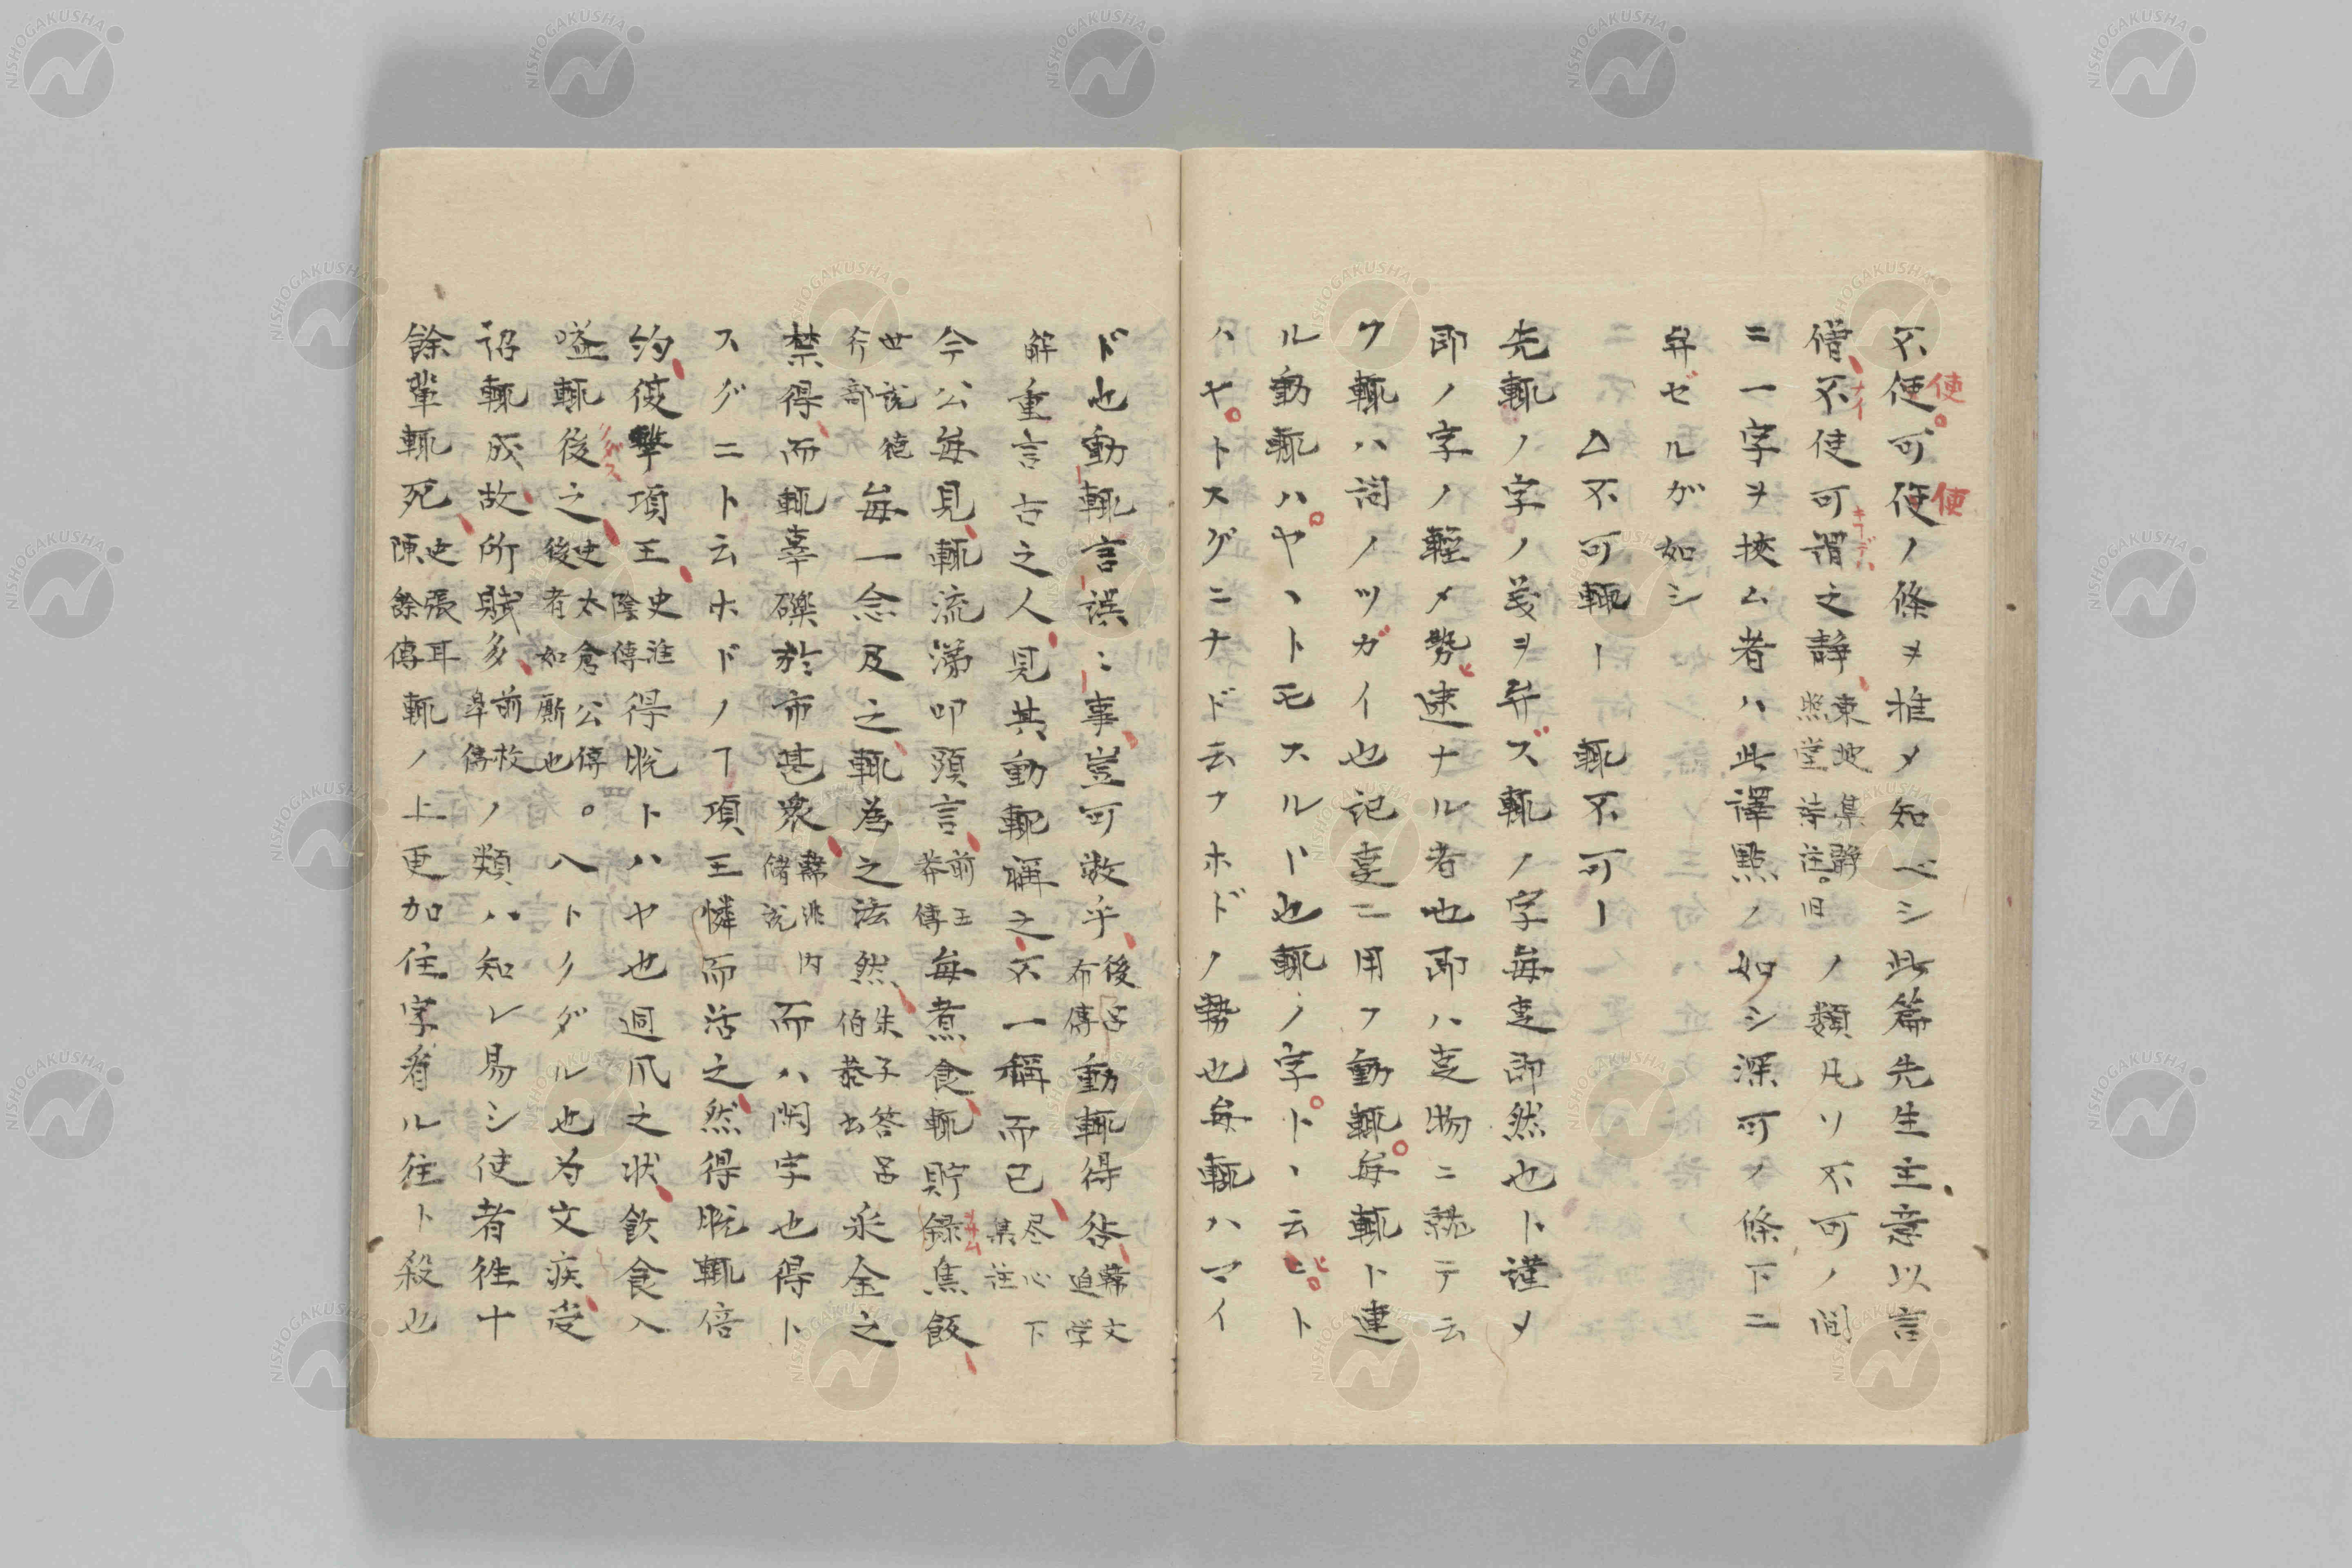 不便可便ノ條ヲ推メ知ベシ此篇先生主意以言
使
使
借不使可謂之靜東坡集靜照堂詩注。旧ノ類凡ソ不可ノ間
ナイ
ニ一字ヲ挾ム者ハ此譯點ノ如シ深可ノ條下ニ
弁ゼルガ如シ
△不可輒ー 輒不可ー
先輒ノ字ノ義ヲ弁ズ輒ノ字毎ニ即然也ト謹メ
即ノ字ノ輕メ勢速ナル者也即ハ物ニ就テ云
フ輒ハ詞ノツガイ也記ニ用フ動輒毎輒ト連
ル動輒ハヤヽトモスルト也輒ノ字トヽ云ト
ヒ
ハヤトスグニナド云フホドノ勢也毎輒ハマイ
ド也動輒言誤〻事豈可数乎後呂布傳動輒得咎韓文迫学
解重言古之人見其動輒稱之不一稱而已尽心下集注
今公毎見輒流涕叩頭言前王莽傳毎煮食輒貯録焦飯
世説德行部毎一念及之輒為之泫然朱子答呂伯恭書采金之
禁得而輒辜磔於市甚衆韓非内儲説而ハ閑字也得ト
スグニト云ホドノヿ項王憐而活之然得脱輒倍
約彼擊項王史淮陰傳得脱トハヤ也迴爪之状飲食入
嗌輒後之史太倉公傳後者如厠也。ハトリダル也为文疾受
詔輒成故所賦多前枚皐傳ノ類ハ知レ易シ使者往十
餘輩輒死史張耳陳餘傳輒ノ上更加往字看ル往ト殺也